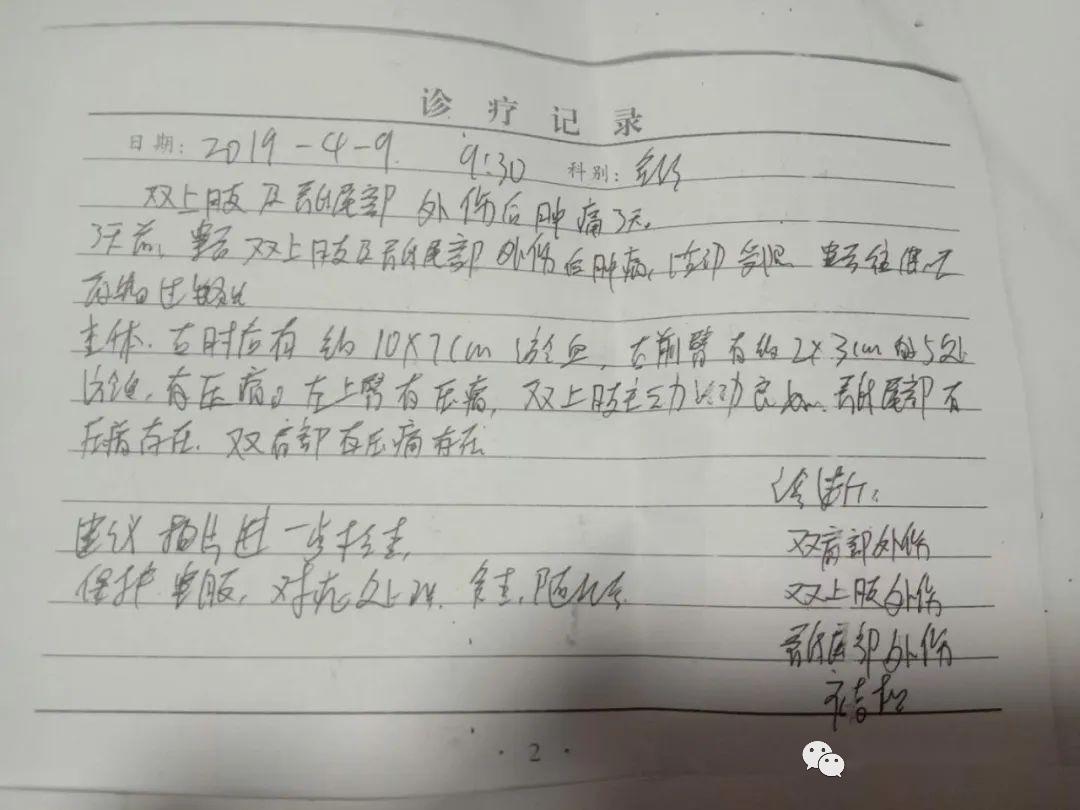 诊疗记录
日期: 2019-4-9. 9:30 科别:
双上肢及骶尾部外伤后肿痛3天。
3天前, 患者双上肢及骶尾部外伤后肿痛, 活动受限 患者往
药物过敏史
查体. 右肘后有约10×7cm淤血, 右前臂有约2×3cm的5处
淤血, 有压痛。左上臂有压痛, 双上肢主动活动良好. 骶尾部有
压痛存在. 双肩部有压痛存在
诊断:
建议拍片进一步检查, 双肩部外伤
保护患肢, 对症处理. 复查. 随诊 双上肢外伤
骶尾部外伤
·2·